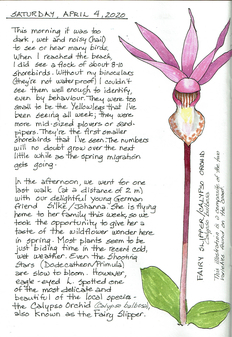 SATURDAY, APRIL 4, 2020
This morning it was too
dark, wet and noisy (hail)
to see or hear many birds.
When I reached the beach,
I did see a flock of about 8-10
shorebirds. Without my binoculars
(they're not waterproof) I couldn't
see them well enough to identify,
even by behaviour. They were too
small to be the Yellowlegs that I've
been seeing all week; they were
more mid-sized plovers or sand-
pipers. They're the first smaller
shorebirds that I've seen. The numbers
will no doubt grow over the next
little while as the spring migration
gets going.
In the afternoon, we went for one
last walk (at a distance of 2 m)
with our delightful young German
friend Silke/Johanna. She is flying
home to her family this week, so we
took the opportunity to give her a
taste of the wildflower wonder here
in spring. Most plants seem to be
just biding time in the recent cold,
wet weather. Even the Shooting
Stars (Dodecatheon/Primula)
are slow to bloom. However,
eagle-eyed L. spotted one
of the most delicate and
beautiful of the local species -
the Calypso Orchid (Calypso bulbosa),
also known as the Fairy Slipper.
FAIRY SLIPPER/CALYPSO ORCHID
Calypso bulbosa
This illustration is a composite of the two